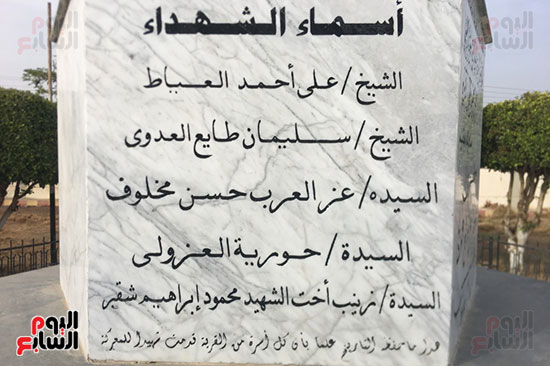 أسماء الشهداء
الشيخ/على أحمد العباط
الشيخ/سليمان طايع العدوى
السيده/عز العرب حسن مخلوف
السيدة/حورية العزولى
السيدة/زينب أخت الشهيد محمود إبراهيم شقير
هذا ما حفظ التاريخ علما بأن كل أسرة من القرية قدمت شهيدا للمعركة
اليوم السابع
اليوم السابع
اليوم السابع
اليوم السابع